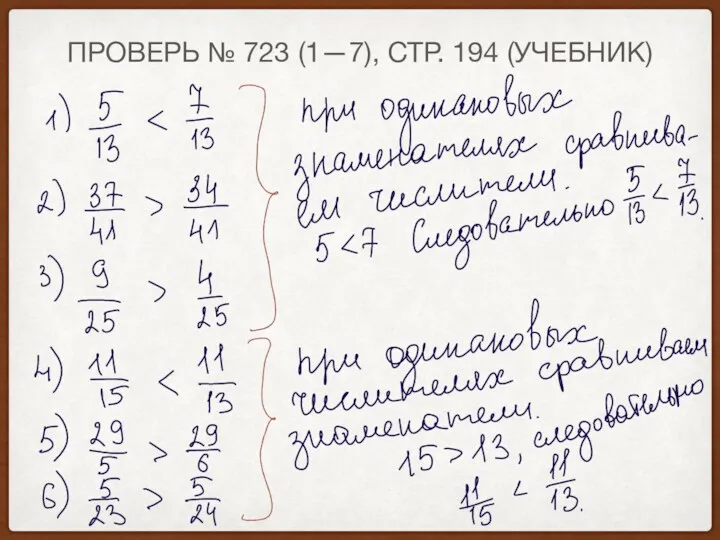 ПРОВЕРЬ № 723 (1—7), СТР. 194 (УЧЕБНИК)
1) 5/13 < 7/13
2) 37/41 > 34/41
3) 9/25 > 4/25
При одинаковых
знаменателях сравнива-
ем числители.
5 < 7 Следовательно 5/13 < 7/13.
4) 11/15 < 11/13
5) 29/5 > 29/6
6) 5/23 > 5/24
При одинаковых
числителях сравниваем
знаменатели.
15 > 13, следовательно
11/15 < 11/13.